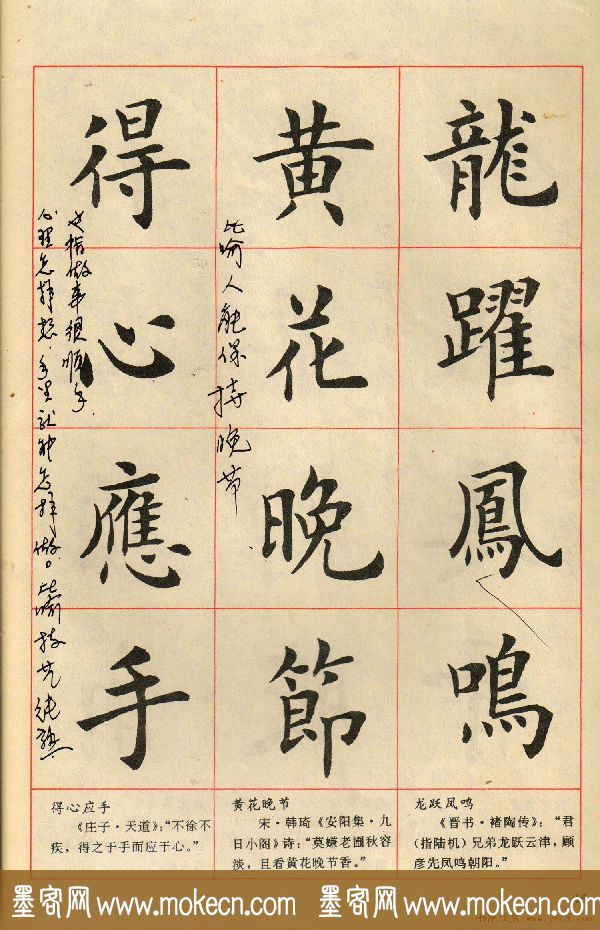 龍躍鳳鳴
黄花晚節
得心應手
比喻人能保持晚节
也指做事很顺手
心里怎样想,手里就能怎样做。比喻技艺纯熟
龙跃凤鸣
《晋书·褚陶传》:“君
(指陆机)兄弟龙跃云津,顾
彦先凤鸣朝阳。”
黄花晚节
宋·韩琦《安阳集·九
日小阁》诗:“莫嫌老圃秋容
淡,且看黄花晚节香。”
得心应手
《庄子·天道》:“不徐不
疾,得之于手而应于心。”
墨客网 www.mokecn.com 墨客网 www.mokecn.com